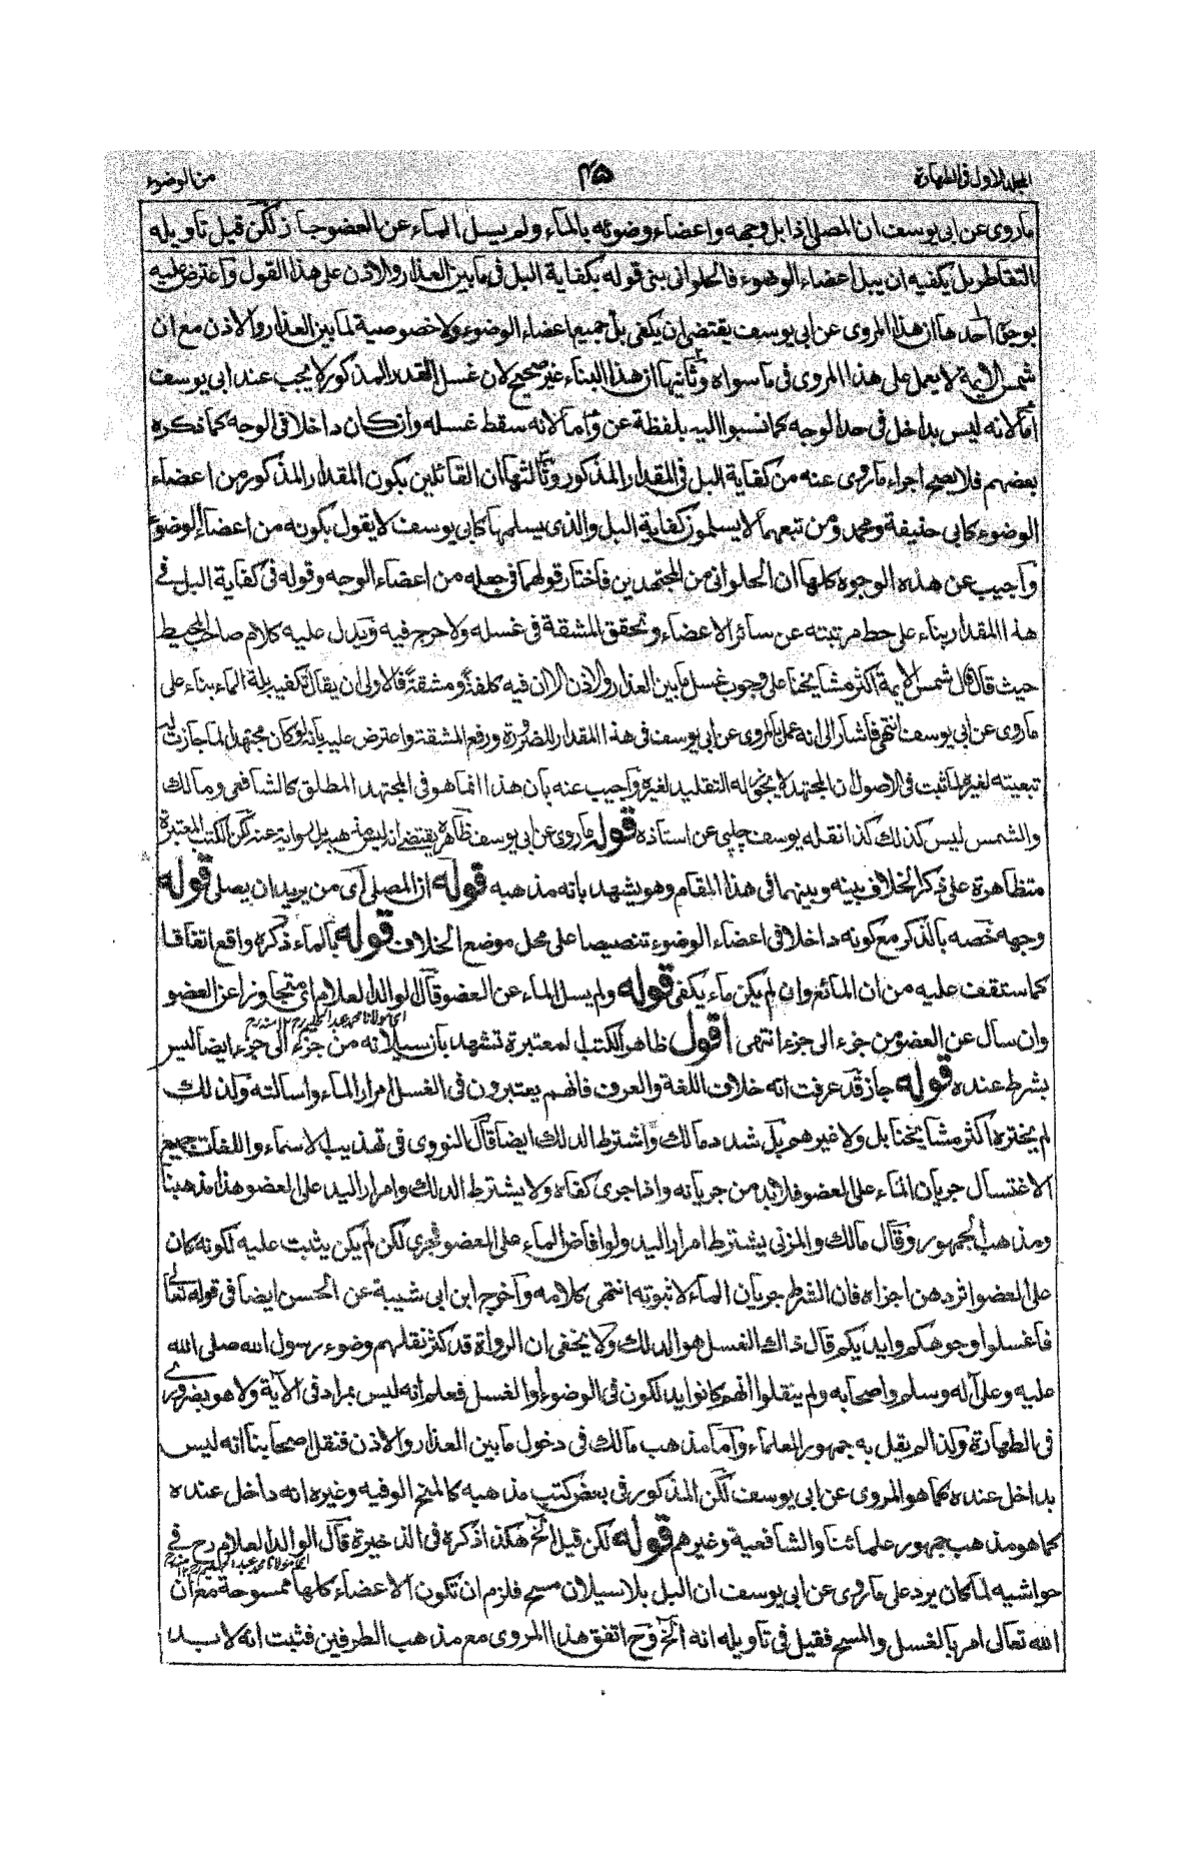 المجلد الاول فى الطهارة
۴۵
من الوضوء
ما روى عن ابى يوسف ان المصلى اذا بل وجهه واعضاء وضوئه بالماء ولم يسل الماء عن العضو جاز لكن قيل تاويله
التقاطر بل يكفيه ان يبل اعضاء الوضوء فالحلوانى بنى قوله بكفاية البل فى ما بين العذار والاذن على هذا القول واعترض عليه
بوجوه احدها ان هذا المروى عن ابى يوسف يقتضى ان يكفى بل جميع اعضاء الوضوء ولا خصوصية لما بين العذار والاذن مع ان
شمس الايمة لا يعمل على هذا المروى فى ما سواه وثانيها ان هذا البناء غير صحيح لان غسل القدر المذكور لا يجب عند ابى يوسف
اما لانه ليس بداخل فى حد الوجه كما نسبوا اليه بلفظة عن واما لانه سقط غسله وان كان داخلا فى الوجه كما ذكره
بعضهم فلا يصح اجراء ما روى عنه من كفاية البل فى المقدار المذكور وثالثها ان القائلين بكون المقدار المذكور من اعضاء
الوضوء كابى حنيفة ومحمد ومن تبعهما لا يسلمون كفاية البل والذى يسلمها كابى يوسف لا يقول بكونه من اعضاء الوضوء
واجيب عن هذه الوجوه كلها ان الحلوانى من المجتهدين فاختار قولهما فى جعله من اعضاء الوجه وقوله فى كفاية البل فى
هذا المقدار بناء على حط مرتبته عن سائر الاعضاء وتحقق المشقة فى غسله ولا حرج فيه ويدل عليه كلام صاحب المحيط
حيث قال قال شمس الايمة اكثر مشايخنا على وجوب غسل ما بين العذار والاذن الا ان فيه كلفة ومشقة فالاولى ان يقال تكفيه بلة الماء بناء على
ما روى عن ابى يوسف انتهى فاشار الى انه عمل بالمروى عن ابى يوسف فى هذا المقدار للضرورة ورفع المشقة واعترض عليه بانه لو كان مجتهدا لما جازت له
تبعيته لغيره لما ثبت فى الاصول ان المجتهد لا يجوز له التقليد لغيره واجيب عنه بان هذا انما هو فى المجتهد المطلق كالشافعى ومالك
والشمس ليس كذلك كذا نقله يوسف چلپى عن استاذه قوله ما روى عن ابى يوسف ظاهره يقتضى انه ليس بمذهبه بل رواية عنه لكن الكتب المعتبرة
متظاهرة على ذكر الخلاف بينه وبينهما فى هذا المقام وهو يشهد بانه مذهبه قوله ان المصلى اى من يريد ان يصلى قوله
وجهه خصه بالذكر مع كونه داخلا فى اعضاء الوضوء تنصيصا على محل موضع الخلاف قوله بالماء ذكره واقع اتفاقا
كما ستقف عليه من ان المائع وان لم يكن ماء يكفى قوله ولم يسل الماء عن العضو قال الوالد العلام اى متجاوزا عن العضو
اى مولانا محمد عبد الحليم رح ۱۲ منه رح
وان سال عن العضو من جزء الى جزء انتهى اقول ظاهر الكتب المعتبرة تشهد بان سيلانه من جزء الى جزء ايضا ليس
بشرط عنده قوله جاز قد عرفت انه خلاف اللغة والعرف فانهم يعتبرون فى الغسل امرار الماء واسالته ولذلك
لم يختره اكثر مشايخنا بل ولا غيرهم بل شدد مالك واشترط الدلك ايضا قال النووى فى تهذيب الاسماء واللغات جميع
الاغتسال جريان الماء على العضو فلا بد من جريانه واذا جرى كفاه ولا يشترط الدلك وامرار اليد على العضو هذا مذهبنا
ومذهب الجمهور وقال مالك والمزنى يشترط امرار اليد ولو افاض الماء على العضو فجرى لكن لم يكن يثبت عليه لكونه كان
على العضو اثر دهن اجزاه فان الشرط جريان الماء لا ثبوته انتهى كلامه واخرج ابن ابى شيبة عن الحسن ايضا فى قوله تعالى
فاغسلوا وجوهكم وايديكم قال ذاك الغسل هو الدلك ولا يخفى ان الرواة قد كثر نقلهم وضوء رسول الله صلى الله
عليه وعلى آله وسلم واصحابه ولم ينقلوا انهم كانوا يدلكون فى الوضوء او الغسل فعلم انه ليس بمراد فى الآية ولا هو بضرورى
فى الطهارة ولذا لم يقل به جمهور العلماء واما مذهب مالك فى دخول ما بين العذار والاذن فنقل اصحابنا انه ليس
بداخل عنده كما هو المروى عن ابى يوسف لكن المذكور فى بعض كتب مذهبه كالمنح الوفيه وغيره انه داخل عنده
كما هو مذهب جمهور علمائنا والشافعية وغيرهم قوله لكن قيل الخ هكذا ذكره فى الذخيرة قال الوالد العلام رح فى
اى مولانا محمد عبد الحليم رح ۱۲ منه رح
حواشيه لما كان يرد على ما روى عن ابى يوسف ان البل بلا سيلان مسح فلزم ان تكون الاعضاء كلها ممسوحة مع ان
الله تعالى امر بالغسل والمسح فقيل فى تاويله انه الخ وح اتفق هذا المروى مع مذهب الطرفين فثبت انه لا بد